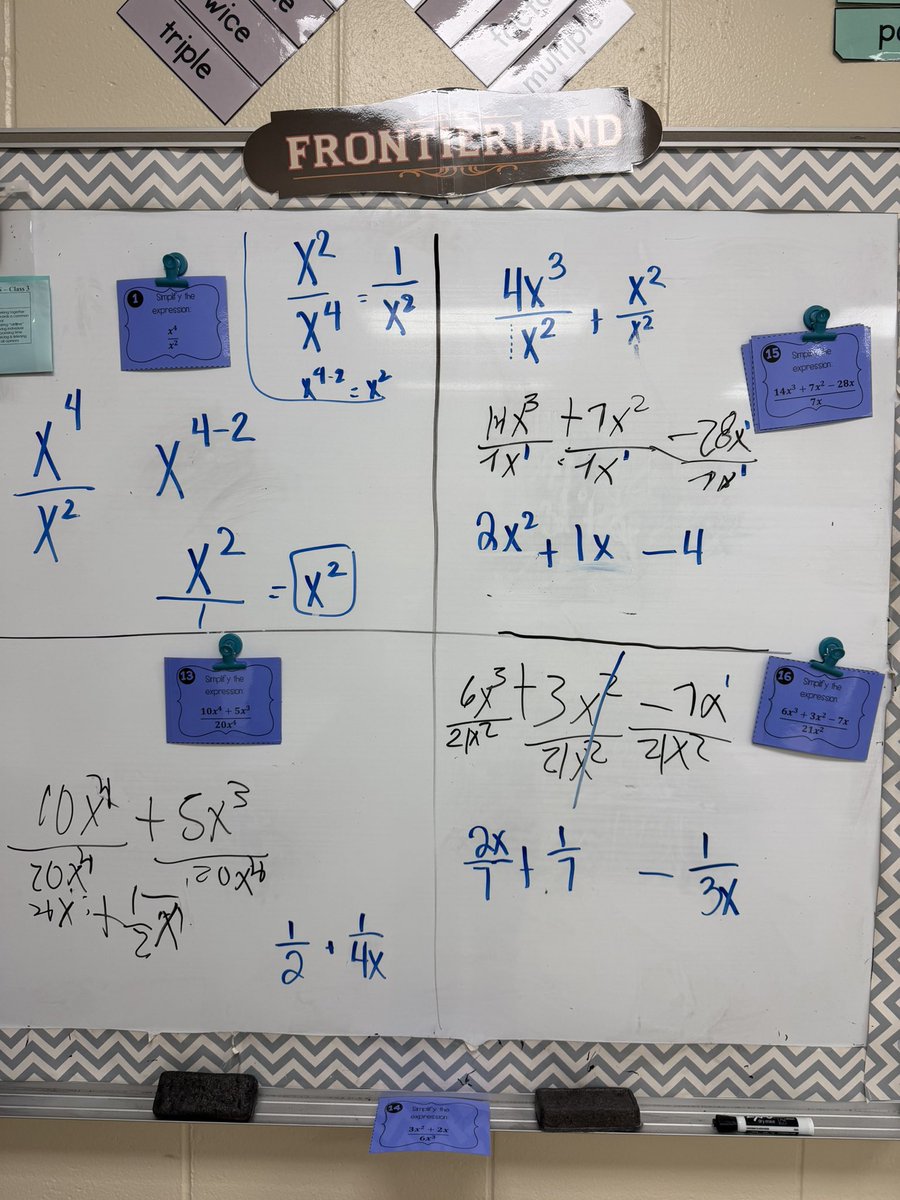 twice
triple
multiple
FRONTIERLAND
1 Simplify the
expression:
x⁴
x²
x²/x⁴ = 1/x²
x⁴⁻² = x²
x⁴/x² x⁴⁻²
x²/1 = x²
4x³/x² + x²/x²
15 Simplify the
expression:
14x³ + 7x² − 28x
7x
14x³/7x¹ + 7x²/7x¹ − 28x¹/7x¹
2x² + 1x − 4
13 Simplify the
expression:
10x⁴ + 5x³
20x⁴
10x⁴/20x⁴ + 5x³/20x⁴
1/2 + 1/4x
16 Simplify the
expression:
6x³ + 3x² − 7x
21x²
6x³/21x² + 3x²/21x² − 7x¹/21x²
2x/7 + 1/7 − 1/3x
14 Simplify the
expression:
3x² + 2x